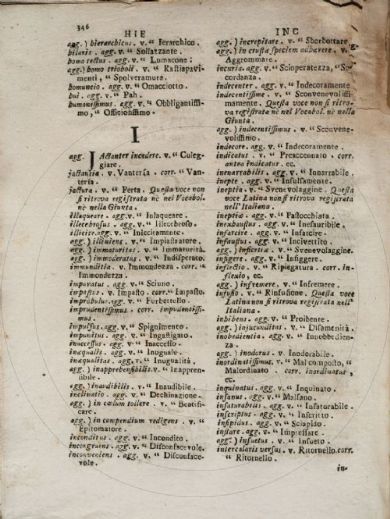 346
HIE
agg.) hierarchicus. v. “ Ierarchico.
hilaris. agg. v. “ Sollazzante.
homo rectus. agg. v. “ Lumacone:
agg.) homo trioboli. v. “ Rastiapavi-
menti, “ Spolveramura.
homuncio. agg. v. “ Omacciotto.
hui. agg. v. “ Pah.
humanissimus. agg. v. “ Obbligantissi-
mo, “ Offiziosissimo.
I
agg. JActanter incedere. v. “ Culeg-
giare.
jactantia. v. “ Vantersa. corr. “ Van-
teria.
jactura. v. “ Perta. Questa voce non
si ritrova registrata nè nel Vocabol.
nè nella Giunta.
illaqueare. agg. v. “ Inlaqueare.
illecebrosus. agg. v. “ Illecebroso.
illicite. agg. v. “ Inlecitamente.
agg.) illiniens. v. “ Impiastratore.
agg.) immaturitas. v. “ Immaturità.
agg.) immoderatus. v. “ Indisperato.
immunditia. v. “ Immondezza. corr. “
Immondezza.
impuratus. agg. v. “ Sciuno.
impostus. v. “ Impasto. corr. “ Impasto.
improbulus. agg. v. “ Furbettello.
imprudentissimus. corr. imprudentissi-
mus.
impulsus. agg. v. “ Spigolmento.
impunitus. agg. v. “ Ingastigato.
inaccessus. agg. v. “ Inaccesso.
inæqualis. agg. v. “ Inuguale.
inæqualitas. agg. v. “ Inugualità.
agg.) inapprehensibilis. v. “ Inappren-
sibile.
agg.) inaudibilis. v. “ Inaudibile.
inclinatio. agg. v. “ Dechinazione.
agg.) in cœlum tollere. v. “ Beatifi-
care.
agg.) in compendium redigens. v. “
Epitomatore.
inconditus. agg. v. “ Incondito.
incongruens. agg. v. “ Disconfacevole.
inconveniens. agg. v. “ Disconface-
vole.
INC
agg.) increpitare. v. “ Sberbottare.
agg.) in crusta speciem adhærere. v. “
Aggrommare.
incuria. agg. v. “ Scioperatezza, “ Sc
cordanza.
indecenter. agg. v. “ Indecoramente.
indecentissime. v. “ Sconvenevolissi-
mamente. Questa voce non si ritro-
va registrata nè nel Vocabol. nè nella
Giunta.
agg.) indecentissimus. v. “ Sconvene-
volissimo.
indecore. agg. v. “ Indecoramente.
indicatus. v. “ Preaccennato. corr.
antea indicatus. ec.
inenarrabilis. agg. v. “ Innarrabile.
inepte. agg. v. “ Insulsamente.
ineptia. v. “ Svenevolaggine. Questa
voce Latina non si ritrova registrata
nell'Italiano.
ineptio. agg. v. “ Pastocchiata.
inexhaustus. agg. v. “ Inesauribile.
infarcire. agg. v. “ Infarcire.
infaustus. agg. v. “ Incivettito.
agg.) infructus. v. “ Svenevolaggine.
infigere. agg. v. “ Infiggere.
inflectio. v. “ Ripiegatura. corr. in-
flexio, ec.
agg.) infremere. v. “ Infremere.
infusio. v. “ Rinfusione. Questa voce
Latina non si ritrova registrata nell'
Italiana.
inhibens. agg. v. “ Proibente.
agg.) injucunditas. v. “ Disamenità.
inobedientia. agg. v. “ Innebbedien-
za.
agg.) inodorus. v. “ Inoderabile.
inordinatissimus. v. “ Malcomposto, “
Malordinato. corr. inordinatus,
ec.
inquinatus. agg. v. “ Inquinato.
insanus. agg. v. “ Malsano.
insaturabilis. agg. v. “ Insaturabile.
inscriptus. agg. v. “ Inscritto.
insipidus. agg. v. “ Sciapito.
instare. agg. v. “ Impressare.
agg.) insuetus. v. “ Insueto.
intercalaris versus. v. Ritornello. corr.
“ Ritornello.
in-